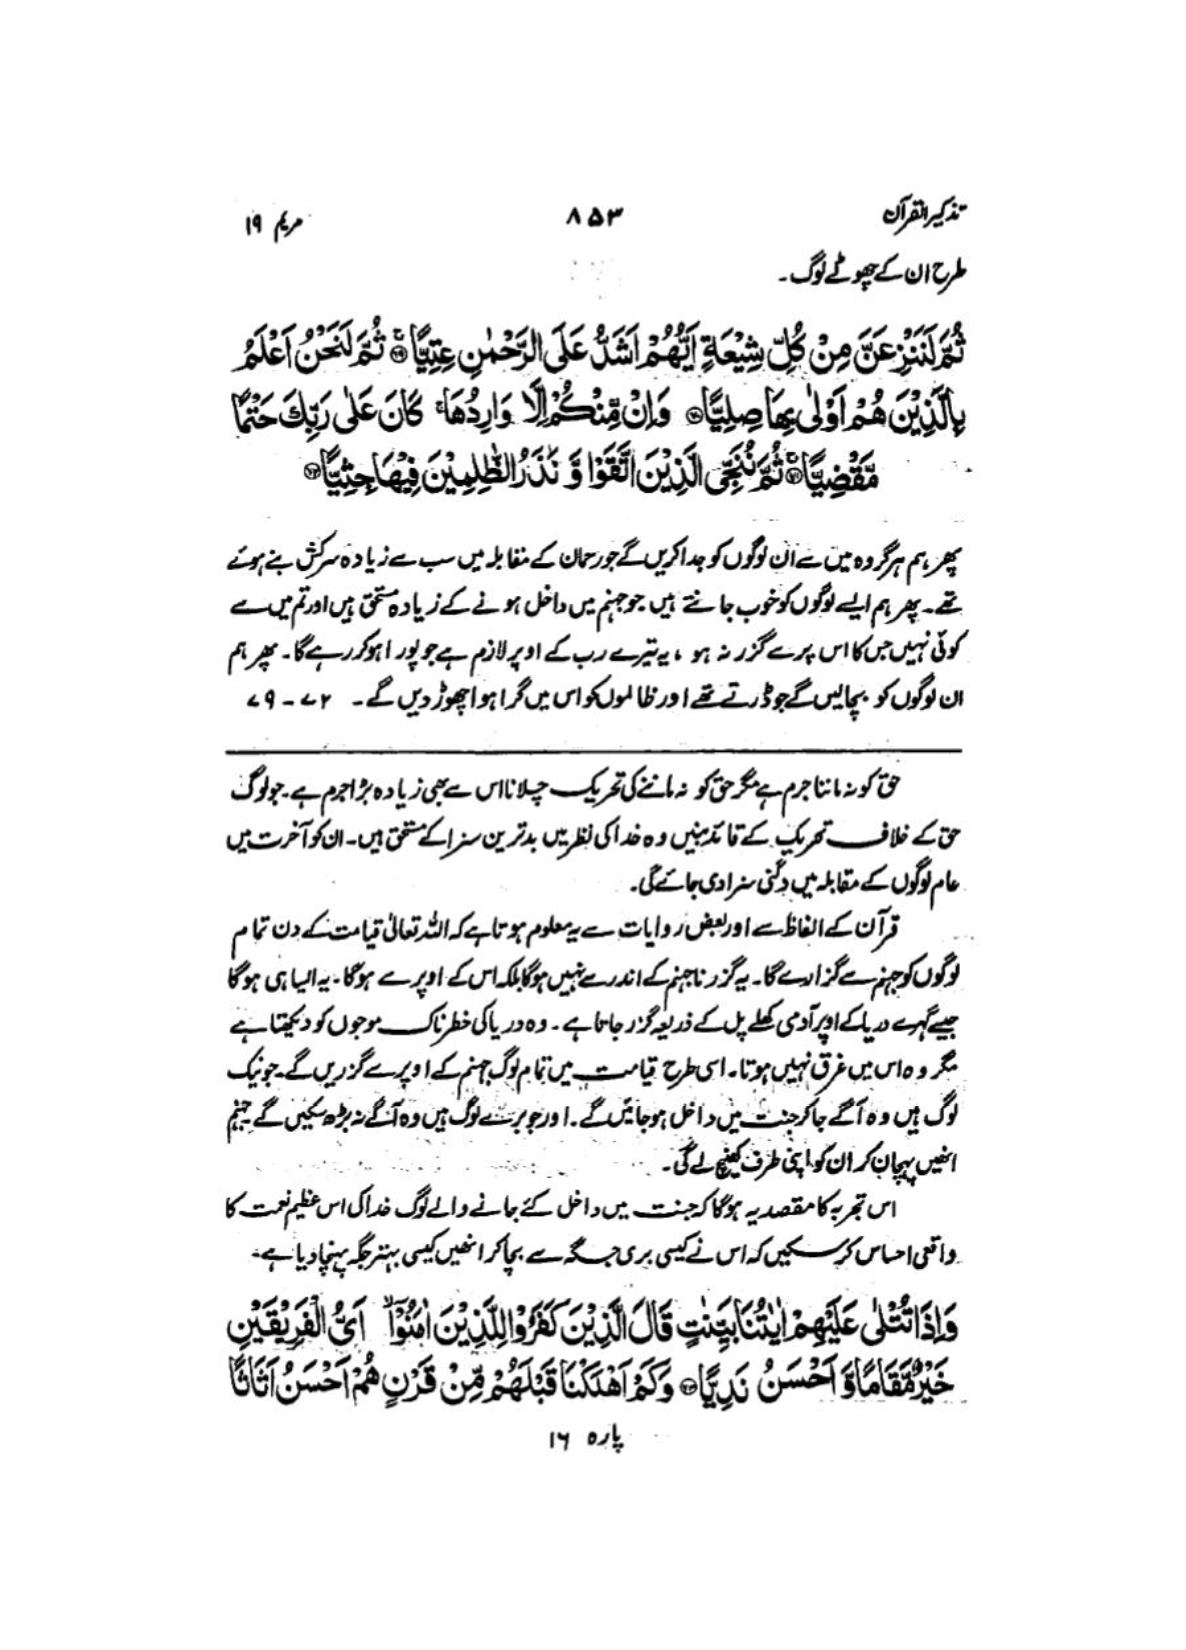 تذکیر القرآن ۸۵۳ مریم ۱۹
طرح ان کے چھوٹے لوگ۔
ثُمَّ لَنَنْزِعَنَّ مِنْ كُلِّ شِيْعَةٍ اَيُّهُمْ اَشَدُّ عَلَى الرَّحْمٰنِ عِتِيًّا ۚ۶۹ ثُمَّ لَنَحْنُ اَعْلَمُ
بِالَّذِيْنَ هُمْ اَوْلٰى بِهَا صِلِيًّا ۷۰ وَاِنْ مِّنْكُمْ اِلَّا وَارِدُهَا ۚ كَانَ عَلٰى رَبِّكَ حَتْمًا
مَّقْضِيًّا ۚ۷۱ ثُمَّ نُنَجِّى الَّذِيْنَ اتَّقَوْا وَّ نَذَرُ الظّٰلِمِيْنَ فِيْهَا جِثِيًّا ۷۲
پھر ہم ہر گروہ میں سے ان لوگوں کو جدا کریں گے جو رحمان کے مقابلہ میں سب سے زیادہ سرکش بنے ہوئے
تھے۔ پھر ہم ایسے لوگوں کو خوب جانتے ہیں جو جہنم میں داخل ہونے کے زیادہ مستحق ہیں اور تم میں سے
کوئی نہیں جس کا اس پر سے گزر نہ ہو ، یہ تیرے رب کے اوپر لازم ہے جو پورا ہو کر رہے گا۔ پھر ہم
ان لوگوں کو بچالیں گے جو ڈرتے تھے اور ظالموں کو اس میں گرا ہوا چھوڑ دیں گے۔ ۷۲ - ۷۹
حق کو نہ ماننا جرم ہے مگر حق کو نہ ماننے کی تحریک چلانا اس سے بھی زیادہ بڑا جرم ہے۔ جو لوگ
حق کے خلاف تحریک کے قائد بنیں وہ خدا کی نظر میں بدترین سزا کے مستحق ہیں۔ ان کو آخرت میں
عام لوگوں کے مقابلہ میں دگنی سزا دی جائے گی۔
قرآن کے الفاظ سے اور بعض روایات سے یہ معلوم ہوتا ہے کہ اللہ تعالیٰ قیامت کے دن تمام
لوگوں کو جہنم سے گزارے گا۔ یہ گزرنا جہنم کے اندر سے نہیں ہوگا بلکہ اس کے اوپر سے ہوگا۔ یہ ایسا ہی ہوگا
جیسے گہرے دریا کے اوپر آدمی کھلے پل کے ذریعہ گزر جاتا ہے۔ وہ دریا کی خطرناک موجوں کو دیکھتا ہے
مگر وہ اس میں غرق نہیں ہوتا۔ اسی طرح قیامت میں تمام لوگ جہنم کے اوپر سے گزریں گے۔ جو نیک
لوگ ہیں وہ آگے جا کر جنت میں داخل ہو جائیں گے۔ اور جو برے لوگ ہیں وہ آگے نہ بڑھ سکیں گے جہنم
انھیں پہچان کر ان کو اپنی طرف کھینچ لے گی۔
اس تجربہ کا مقصد یہ ہوگا کہ جنت میں داخل کئے جانے والے لوگ خدا کی اس عظیم نعمت کا
واقعی احساس کر سکیں کہ اس نے کیسی بری جگہ سے بچا کر انھیں کیسی بہتر جگہ پہنچا دیا ہے۔
وَاِذَا تُتْلٰى عَلَيْهِمْ اٰيٰتُنَا بَيِّنٰتٍ قَالَ الَّذِيْنَ كَفَرُوْا لِلَّذِيْنَ اٰمَنُوْٓا ۙ اَىُّ الْفَرِيْقَيْنِ
خَيْرٌ مَّقَامًا وَّ اَحْسَنُ نَدِيًّا ۷۳ وَكَمْ اَهْلَكْنَا قَبْلَهُمْ مِّنْ قَرْنٍ هُمْ اَحْسَنُ اَثَاثًا
پارہ ۱۶